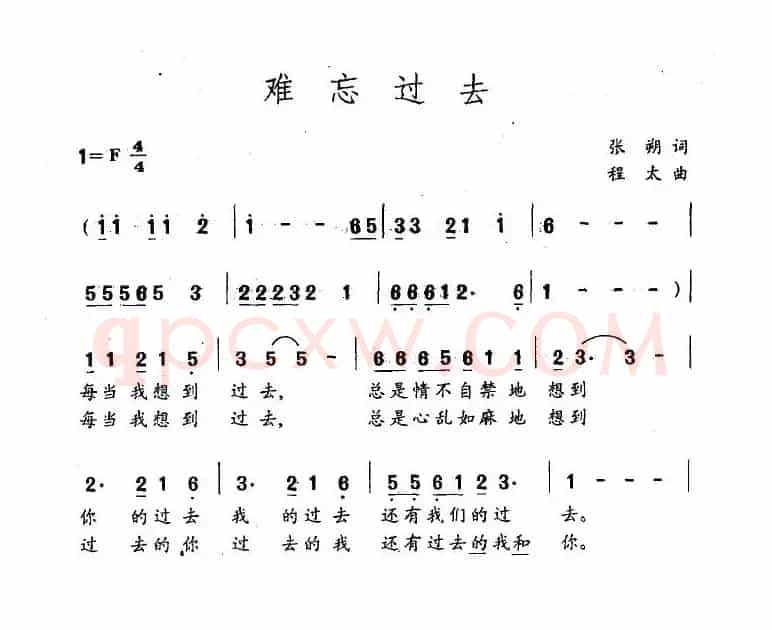 难忘过去
1=F 4/4
张朔词
程太曲
(1 1 1 1 2 | 1 - - 6 5 | 3 3 2 1 1 | 6 - - - |
5 5 5 6 5 3 | 2 2 2 3 2 1 | 6 6 6 1 2· 6 | 1 - - - ) |
qpcxw.COM
1 1 2 1 5 | 3 5 5 - | 6 6 6 5 6 1 1 | 2 3· 3 - |
每当我想到 过去, 总是情不自禁地 想到
每当我想到 过去, 总是心乱如麻地 想到
2· 2 1 6 | 3· 2 1 6 | 5 5 6 1 2 3· | 1 - - - |
你 的过去 我 的过去 还有我们的过 去。
过 去的你 过 去的我 还有过去的我和 你。